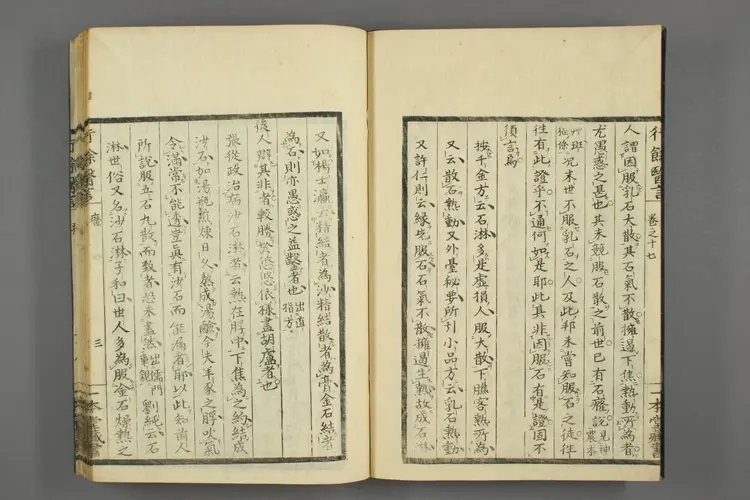 行餘醫言
卷之十七
一本堂藏書
人謂因服乳石大散其石氣不散擁遏下焦熱動所為者
尤愚惑之甚也其未競服石散之前世已有石癃說見神農本
艸班猫條況末世不服乳石之人及此邦未嘗知服石之徒件
徃有此證乎不通何如是耶此其非因服石有是證固不
須言焉
按千金方云石淋多是虛損人服大散下膲客熱所為
又云散石熱動又外臺秘要所引小品方云乳石熱動
又許仁則云緣先服石石氣不散擁遏生熱故成石淋
又如楊士瀛云精結者為沙精結散者為膏金石結者
為石則亦愚惑之益鑿者也出直指方
後人辨其非者較勝於悠悠依樣畫胡盧者也
張從政治病沙石淋者云熱在脬中下焦為之約結成
沙石如湯瓶煎煉日久熬成湯鹼今夫羊豕之脬吹氣
令滿常不能透豈真有沙石而能漏者耶以此知前人
所說服五石丸散而致者恐未盡然出儒門事親劉純云石
淋世俗又名沙石淋子和曰世人多為服金石燥熱之
三